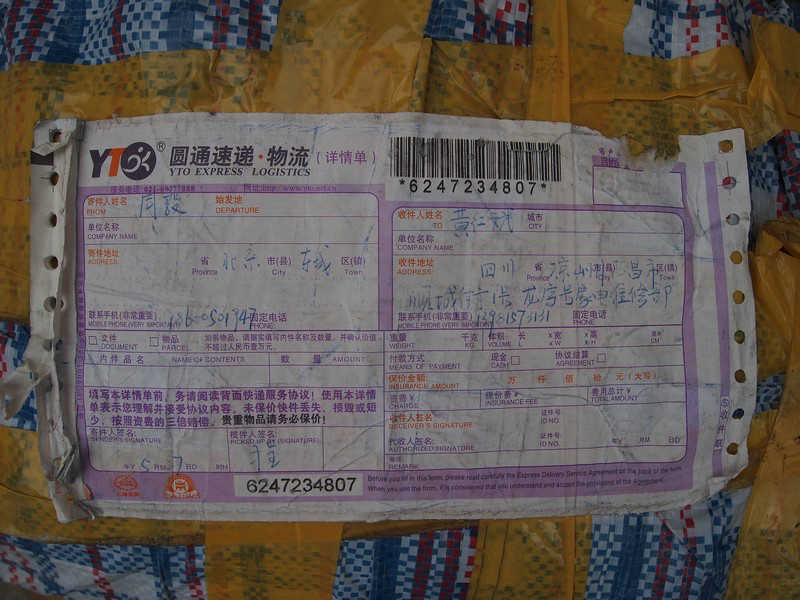 YTO® 圆通速递·物流（详情单）
YTO EXPRESS LOGISTICS
*6247234807*
寄件人姓名 始发地
FROM DEPARTURE
单位名称
COMPANY NAME
寄件地址 省 北京 市(县) 东城 区(镇)
ADDRESS: Province City Town
联系手机(非常重要) 固定电话
MOBILE PHONE(VERY IMPORTANT) PHONE
收件人姓名 城市
TO CITY
单位名称
COMPANY NAME
收件地址 四川 省 凉山 昌市 区(镇)
ADDRESS: Province City Town
联系手机(非常重要) 固定电话
MOBILE PHONE(VERY IMPORTANT) PHONE
□文件 □物品 如系物品，请据实填写内件名称及数量，并确认价值
DOCUMENT PARCEL 不超过人民币壹万元。
内件品名 NAME OF CONTENTS 数量 AMOUNT
填写本详情单前，务请阅读背面快递服务协议！使用本详情
单表示您理解并接受协议内容。未保价快件丢失、损毁或短
少，按照资费的三倍赔偿。贵重物品请务必保价！
寄件人签名: 收件人签名:
SENDER'S SIGNATURE PICKED UP BY (SIGNATURE)
年Y 5 月M 7 日D 时H
6247234807
重量 千克 体积: 长 ×宽 ×高
WEIGHT KG VOLUME L W H CM³
付款方式 现金□ 协议结算□
MEANS OF PAYMENT CASH AGREEMENT
保价金额: 万 仟 佰 拾 元（大写）
INSURANCE AMOUNT
资费¥ 保价费¥ 费用总计¥
CHARGE INSURANCE FEE TOTAL AMOUNT
收件人签名: 证件号
RECEIVER'S SIGNATURE ID NO.
代收人签名: 证件号
AUTHORIZED SIGNATURE ID NO.
备注 年Y 月M 日D
REMARK
Before you fill in this form, please read carefully the Express Delivery Service Agreement on the back of the form.
When you use the form, it is considered that you understand and accept the provisions of the Agreement.